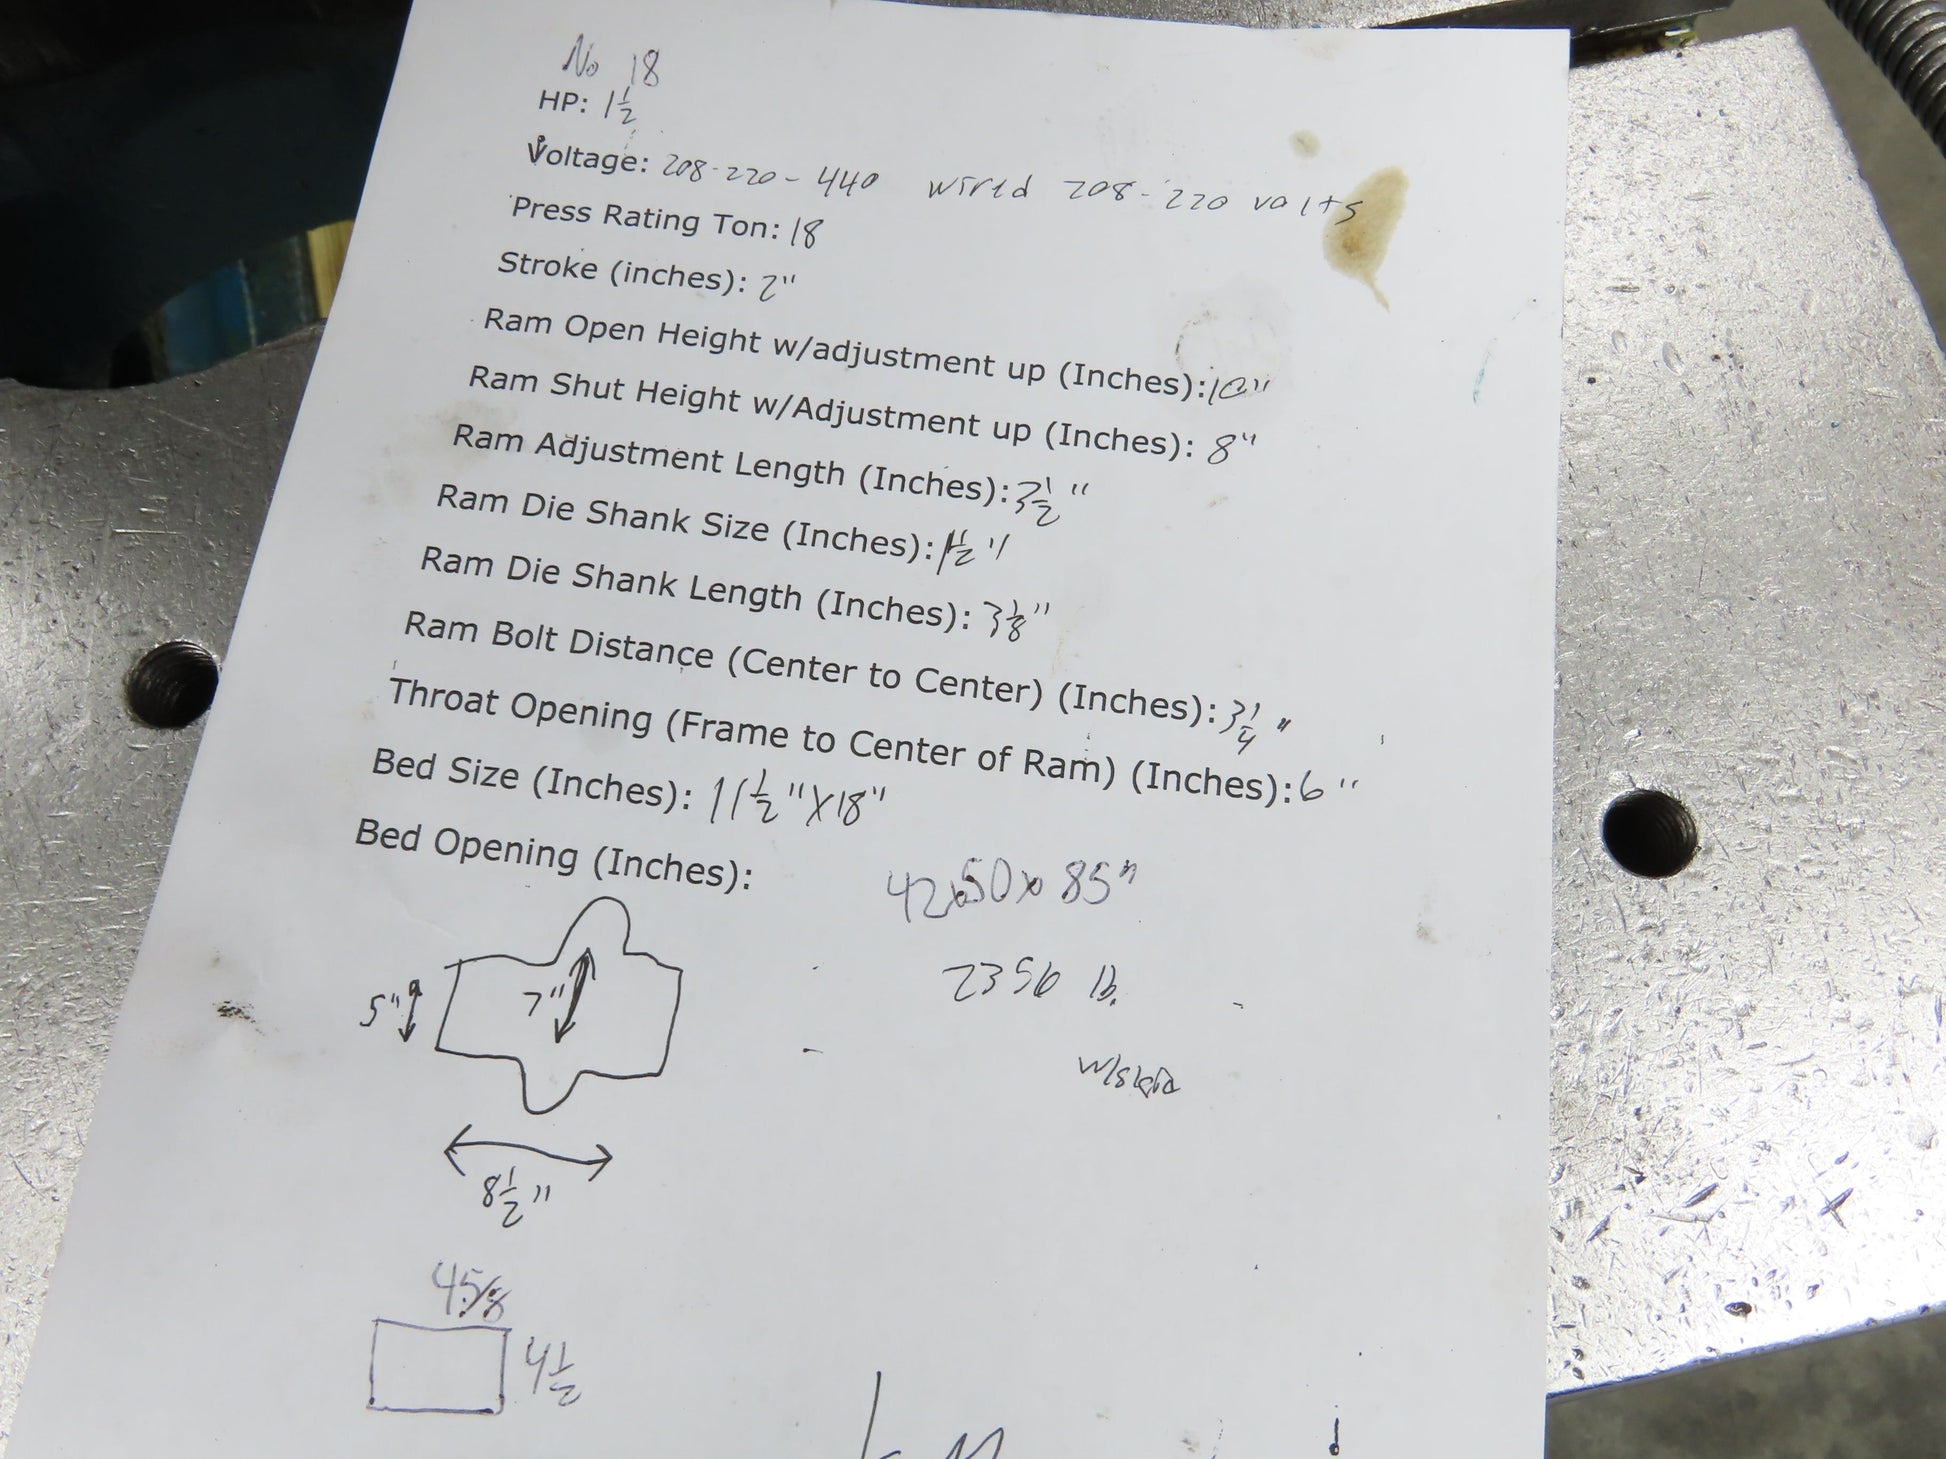 No 18
HP: 1 1/2
Voltage: 208-220-440 wired 208-220 volts
Press Rating Ton: 18
Stroke (inches): 2"
Ram Open Height w/adjustment up (Inches): 10"
Ram Shut Height w/Adjustment up (Inches): 8"
Ram Adjustment Length (Inches): 3 1/2"
Ram Die Shank Size (Inches): 1 1/2"
Ram Die Shank Length (Inches): 3 1/8"
Ram Bolt Distance (Center to Center) (Inches): 3 1/4"
Throat Opening (Frame to Center of Ram) (Inches): 6"
Bed Size (Inches): 11 1/2" X 18"
Bed Opening (Inches):
42x50x85"
5" 7"
2356 lb.
w/skid
8 1/2"
4 5/8
4 1/2